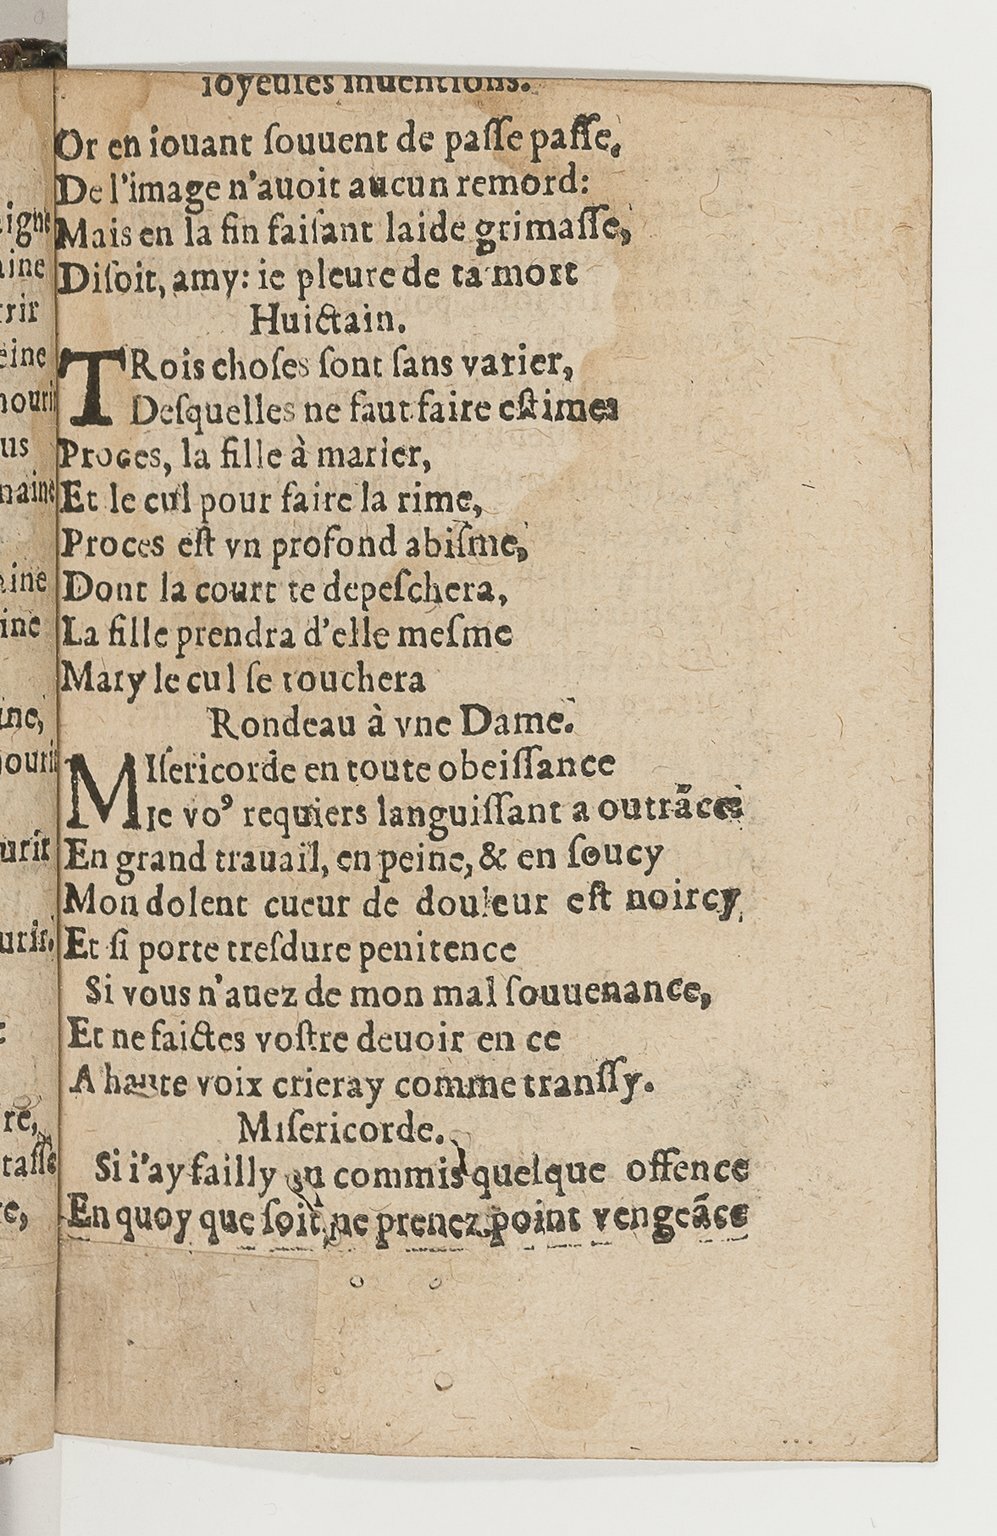 ioyeuſes inuentions.
Or en iouant ſouuent de paſſe paſſe,
De l'image n'auoit aucun remord:
Mais en la fin faiſant laide grimaſſe,
Diſoit, amy: ie pleure de ta mort
Huictain.
TRois choſes ſont ſans varier,
Deſquelles ne faut faire eſtimes
Proces, la fille à marier,
Et le cul pour faire la rime,
Proces eſt vn profond abiſme,
Dont la court te depeſchera,
La fille prendra d'elle meſme
Mary le cul ſe touchera
Rondeau à vne Dame.
MIſericorde en toute obeiſſance
Ie vo⁹ requiers languiſſant a outrāce
En grand trauail, en peine, & en ſoucy
Mon dolent cueur de douleur eſt noircy,
Et ſi porte treſdure penitence
Si vous n'auez de mon mal ſouuenance,
Et ne faictes voſtre deuoir en ce
A haute voix crieray comme tranſſy.
Miſericorde.
Si i'ay failly ou commis quelque offence
En quoy que ſoit, ne prenez point vengeāce